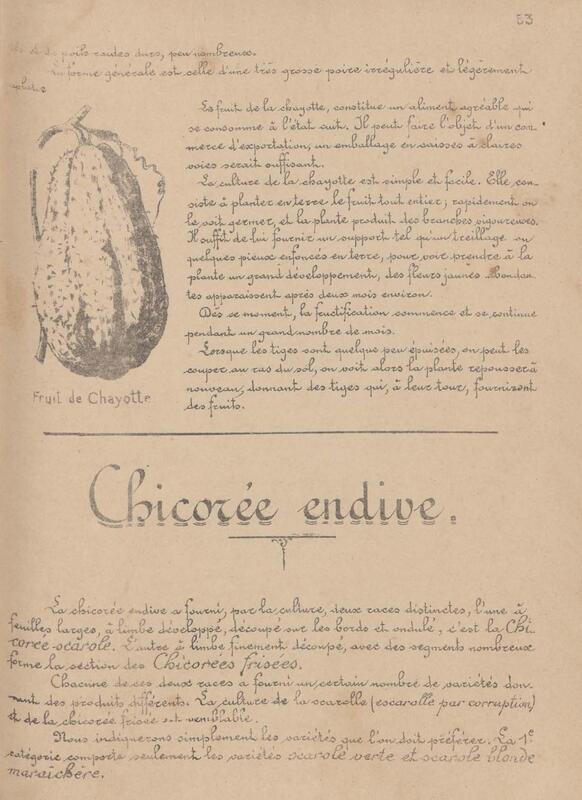 53
de poils raides durs, peu nombreux.
La forme générale est celle d'une très grosse poire irrégulière et légèrement
aplatie
Le fruit de la chayotte, constitue un aliment agréable qui
se consomme à l'état cuit. Il peut faire l'objet d'un com-
merce d'exportation, un emballage en caisses à claires
voies serait suffisant.
La culture de la chayotte est simple et facile. Elle con-
siste à planter en terre le fruit tout entier; rapidement on
le voit germer, et la plante produit des branches vigoureuses.
Il suffit de lui fournir un support tel qu'un treillage ou
quelques pieux enfoncés en terre, pour voir prendre à la
plante un grand développement, des fleurs jaunes abondan-
tes apparaissent après deux mois environ.
Dès se moment, la fructification commence et se continue
pendant un grand nombre de mois.
Lorsque les tiges sont quelque peu épuisées, on peut les
couper au ras du sol, on voit alors la plante repousser à
nouveau, donnant des tiges qui, à leur tour, fournissent
des fruits.
Fruit de Chayotte
Chicorée endive.
La chicorée endive a fourni, par la culture, deux races distinctes, l'une à
feuilles larges, à limbe développé, découpé sur les bords et ondulé, c'est la Chi-
corée-scarole. L'autre à limbe finement découpé, avec des segments nombreux
forme la section des Chicorées frisées.
Chacune de ces deux races a fourni un certain nombre de variétés don-
nant des produits différents. La culture de la scarolle (escarolle par corruption)
et de la chicorée frisée est semblable.
Nous indiquerons simplement les variétés que l'on doit préférer. La 1e
catégorie comporte seulement les variétés scarole verte et scarole blonde
maraîchère.